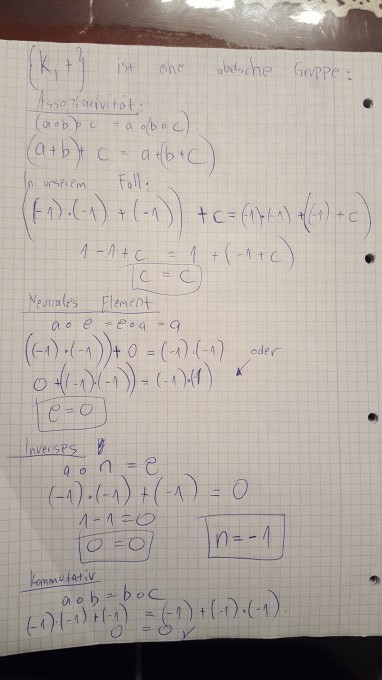 {K, +} ist eine abelsche Gruppe:
Assoziativität:
(a∘b)∘c = a∘(b∘c)
(a+b)+c = a+(b+c)
In unserem Fall:
((-1)·(-1) + (-1)) + c = (-1)·(-1) + ((-1) + c)
1-1+c = 1 + (-1+c)
c = c
Neutrales Element
a∘e = e∘a = a
((-1)·(-1))+0 = (-1)·(-1)
oder
0+((-1)·(-1)) = (-1)·(1)
e=0
Inverses
a∘n = e
(-1)·(-1) + (-1) = 0
1-1=0
0=0
n=-1
Kommutativ
a∘b = b∘c
(-1)·(-1)+(-1) = (-1)+(-1)·(-1)
0 = 0 ✓